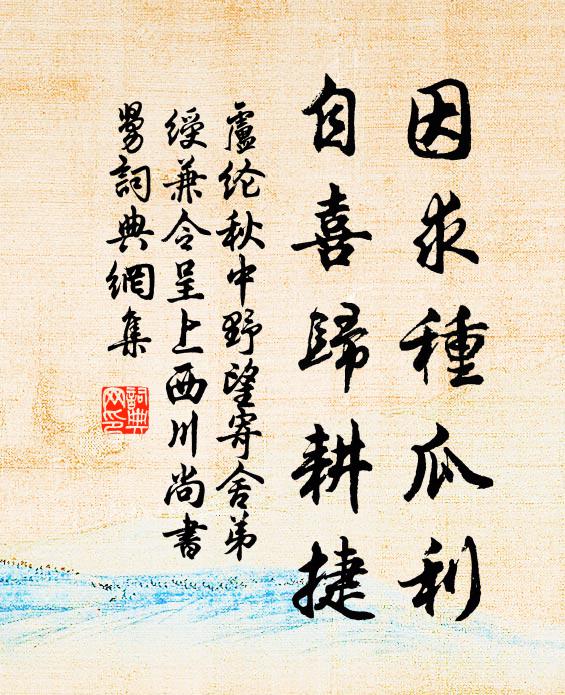 因求種瓜利
自喜歸耕捷
盧纶秋中野望寄舍弟
綬兼令呈上西川尚書
舅詞典網集
詞典
网印